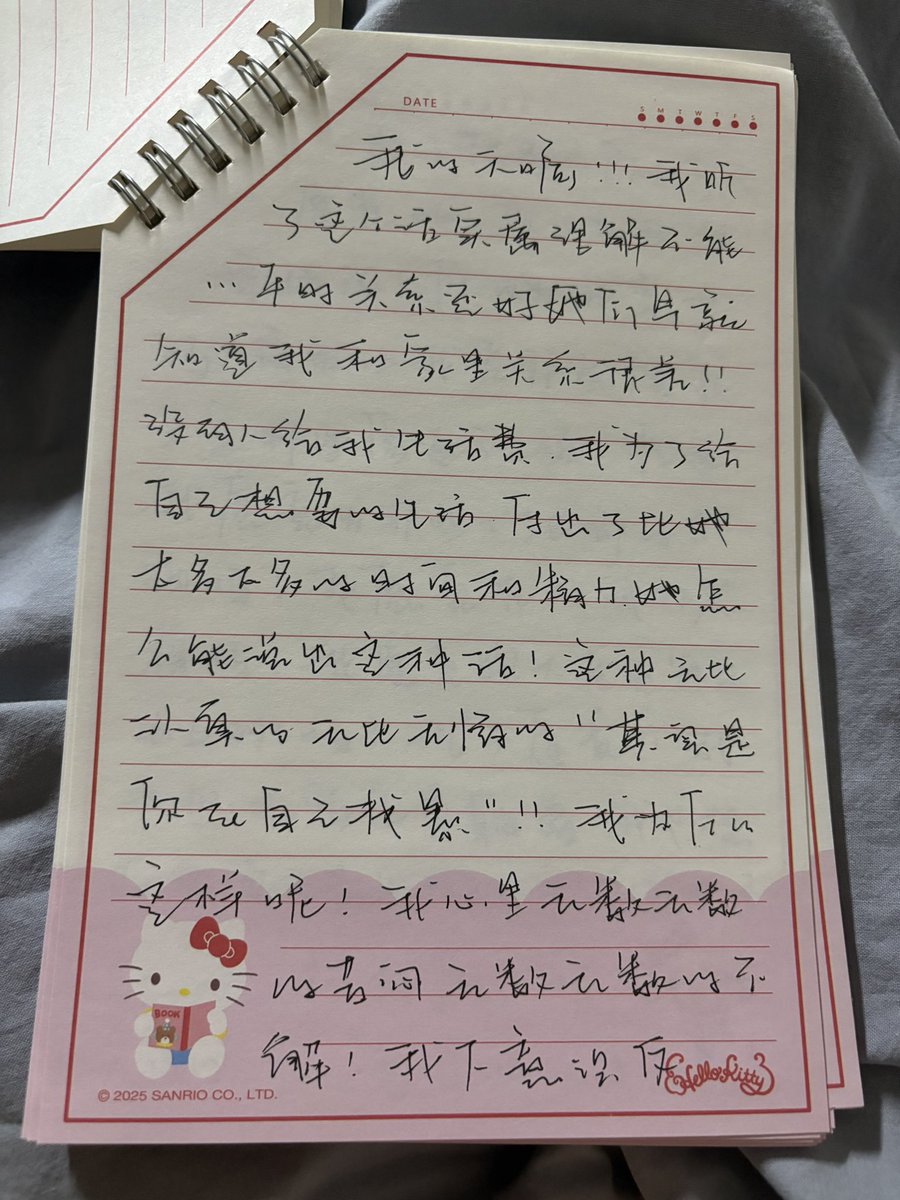 DATE
S M T W T F S
我的天哪!!! 我听
了这个话实属理解不能
…平时关系还好她们早就
知道我和家里关系很差!!
没有人给我生活费.我为了给
自己想要的生活 付出了比她
太多太多的时间和精力.她怎
么能说出这种话!这种无比
冰莫的无比刻 的“其实是
你在自己找累”!! 我为什么
这样呢!我心里无数无数
的苦闷 无数无数的不
解!我下意识反
BOOK
Hello Kitty
© 2025 SANRIO CO., LTD.